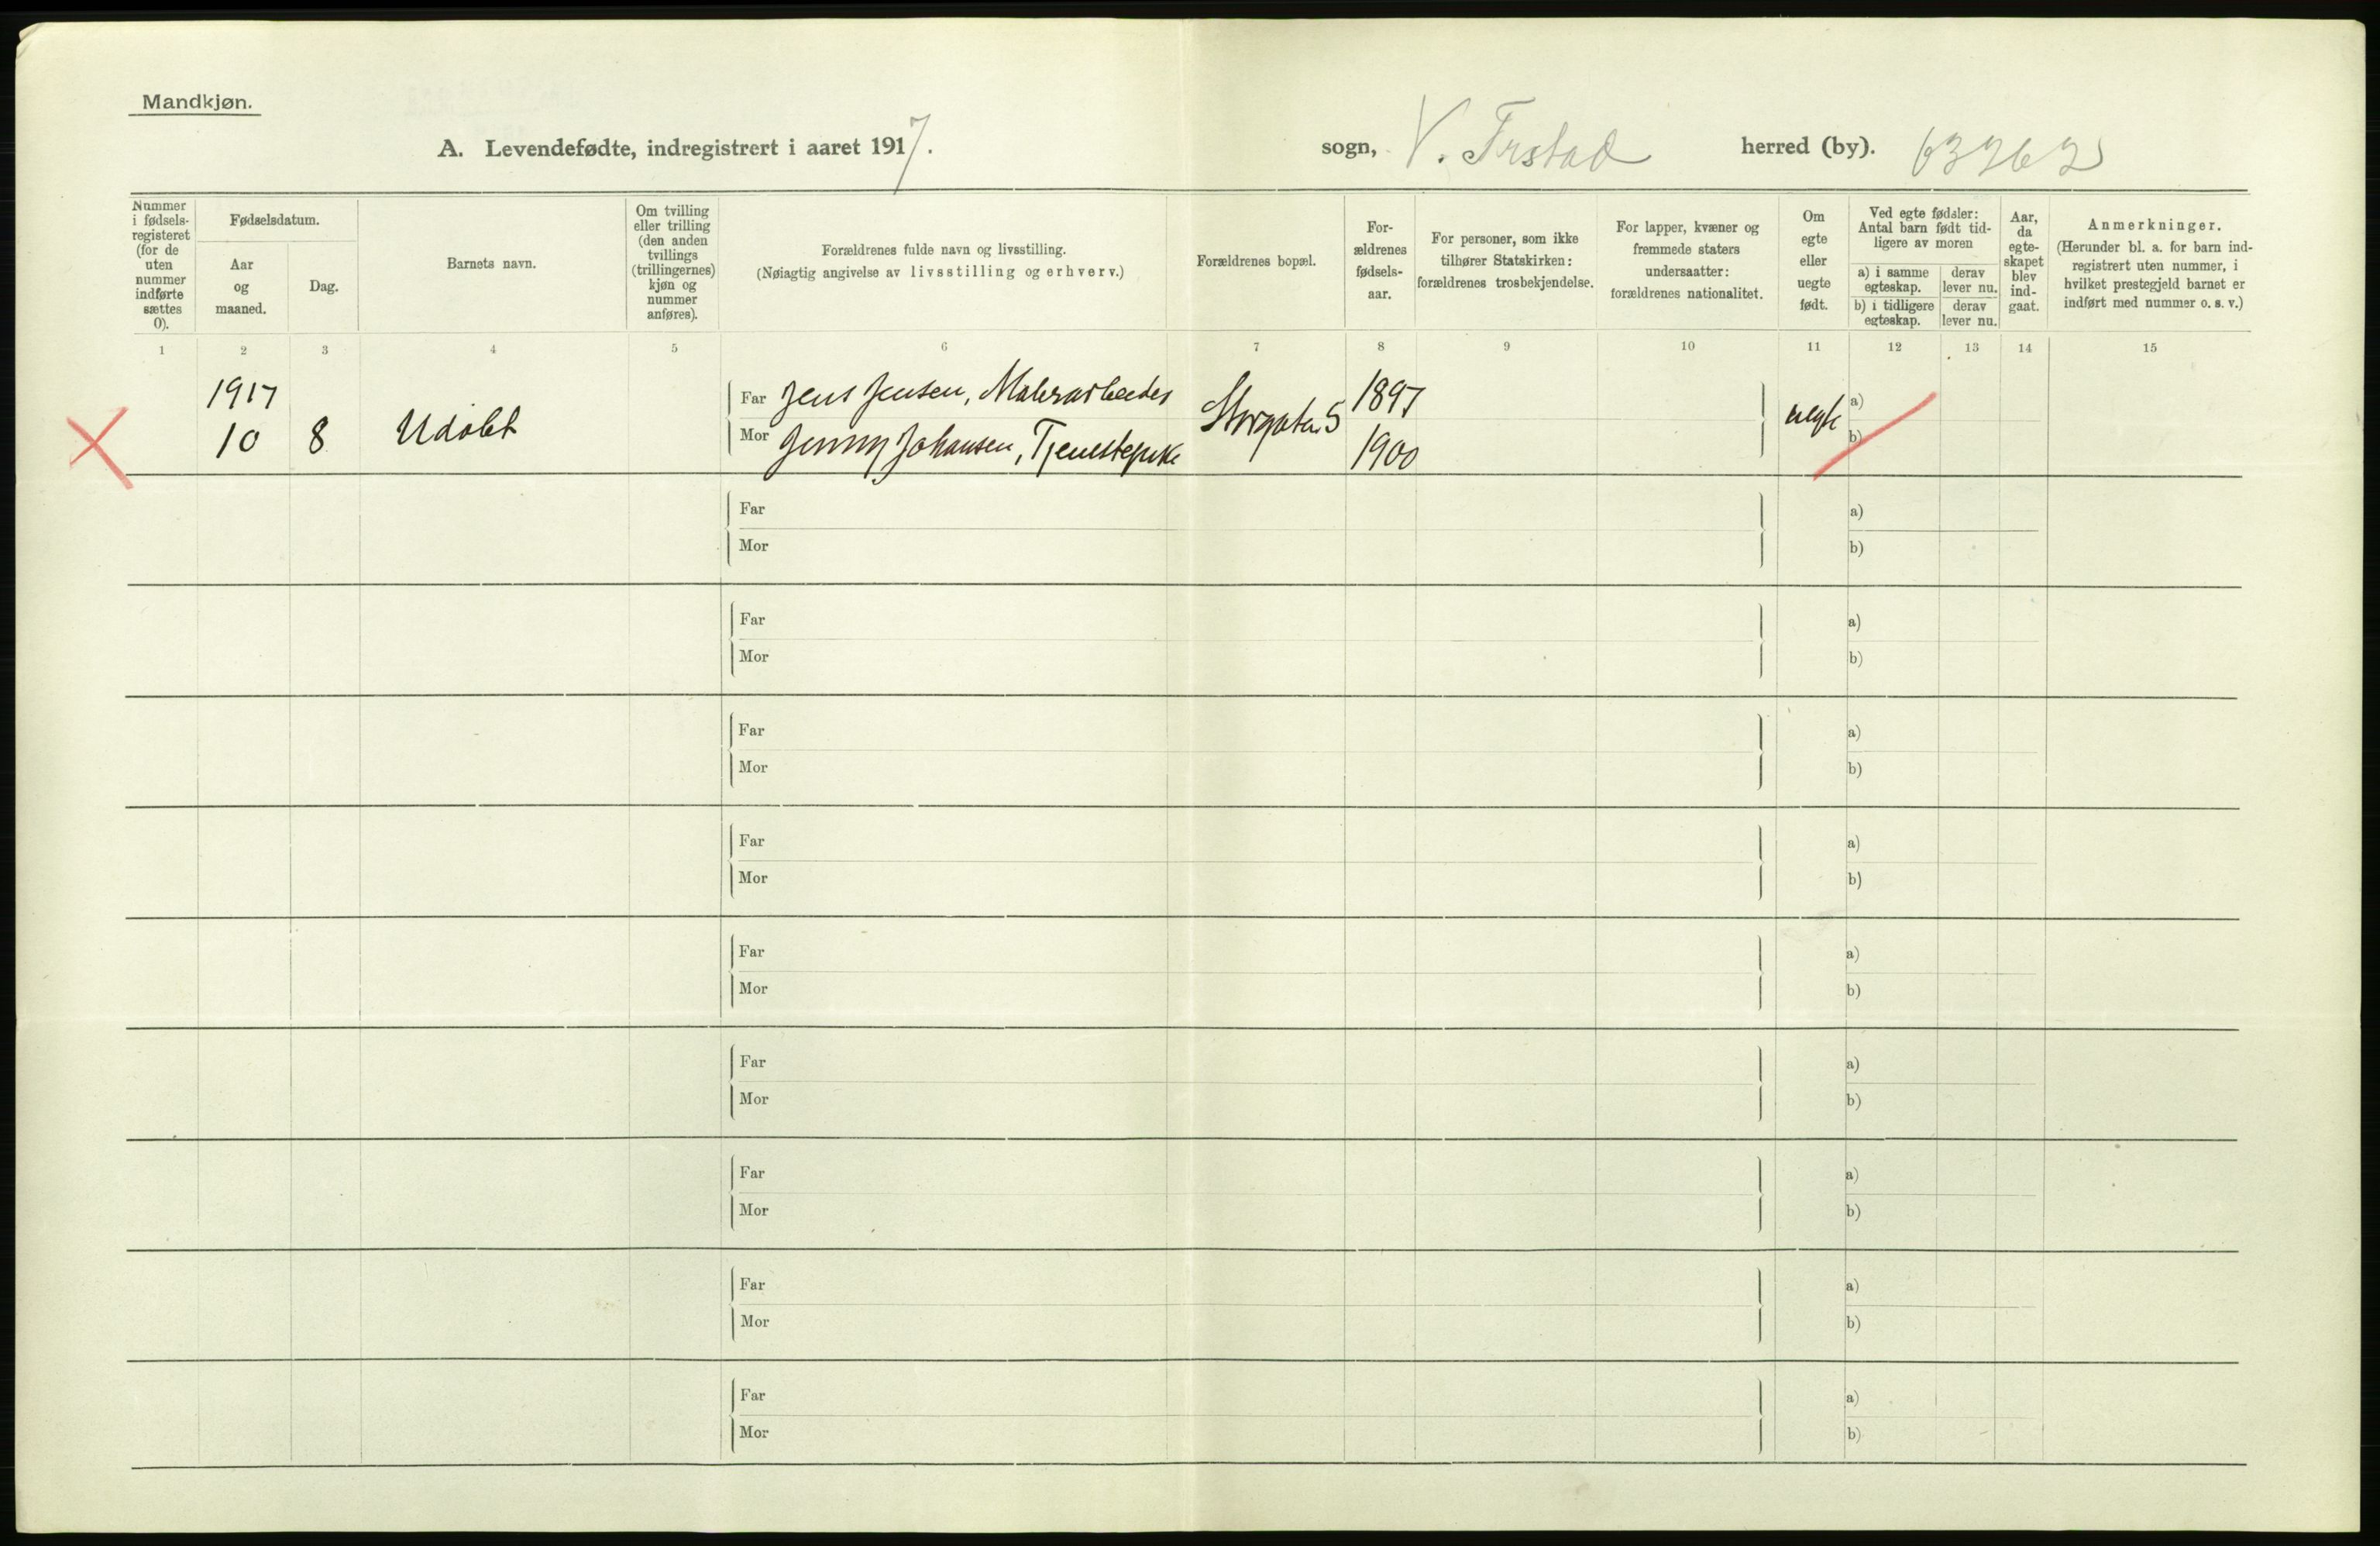 Mandkjøn.
A. Levendefødte, indregistrert i aaret 1917.
sogn, V. Frstad herred (by). 63262
Nummer i fødsels-registeret (for de uten nummer indførte sættes 0).
Fødselsdatum.
Aar og maaned.
Dag.
Barnets navn.
Om tvilling eller trilling (den anden tvillings (trillingernes) kjøn og nummer anføres).
Forældrenes fulde navn og livsstilling.
(Nøiagtig angivelse av livsstilling og erhverv.)
Forældrenes bopæl.
For-ældrenes fødsels-aar.
For personer, som ikke tilhører Statskirken: forældrenes trosbekjendelse.
For lapper, kvæner og fremmede staters undersaatter: forældrenes nationalitet.
Om egte eller uegte født.
Ved egte fødsler: Antal barn født tid-ligere av moren
a) i samme egteskap.
derav lever nu.
b) i tidligere egteskap.
derav lever nu.
Aar, da egte-skapet blev ind-gaat.
Anmerkninger.
(Herunder bl. a. for barn ind-registrert uten nummer, i hvilket prestegjeld barnet er indført med nummer o. s. v.)
1 2 3 4 5 6 7 8 9 10 11 12 13 14 15
1917
10 8 Udøbt
Far Jens Jensen, Malerarbeider
Mor Jenny Johansen, Tjenestepike
Storgaten 5
1897
1900
uegte
a)
b)
Far a)
Mor b)
Far a)
Mor b)
Far a)
Mor b)
Far a)
Mor b)
Far a)
Mor b)
Far a)
Mor b)
Far a)
Mor b)
Far a)
Mor b)
Far a)
Mor b)